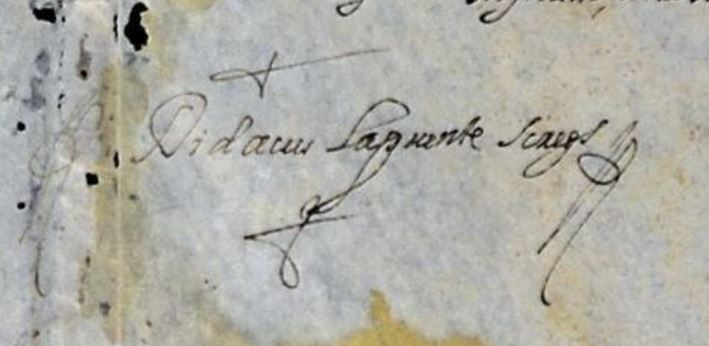 Didacus Lapuente Scrips